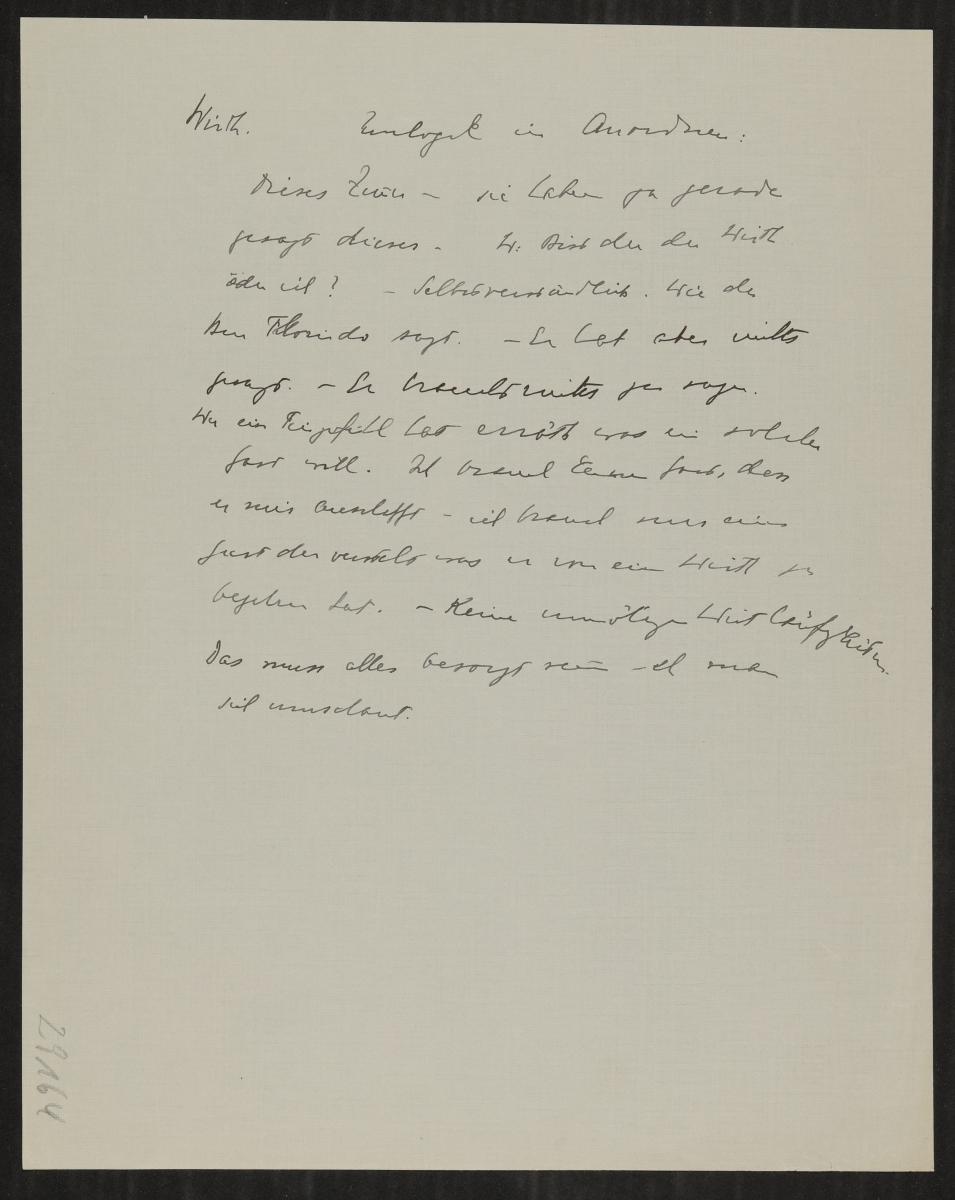 Wirth. Unlogik in Anordnen:
Dieses Zimmer – sie haben ja gerade
gesagt dieses – W: Bist du der Wirth
oder ich? – Selbstverständlich. Wie der
Herr Florindo sagt. – Er hat aber nichts
gesagt. – Er braucht nichts zu sagen.
Wer ein Feingefühl hat erräth was ein solcher
Gast will. Ich brauch keinen Gast, dass
er mir anschafft – ich brauch nur einen
Gast der versteht was er von einem Wirth zu
begehren hat. – Keine unnötigen Weitläufigkeiten.
Das muss alles besorgt sein – eh man
sich umschaut.
29164